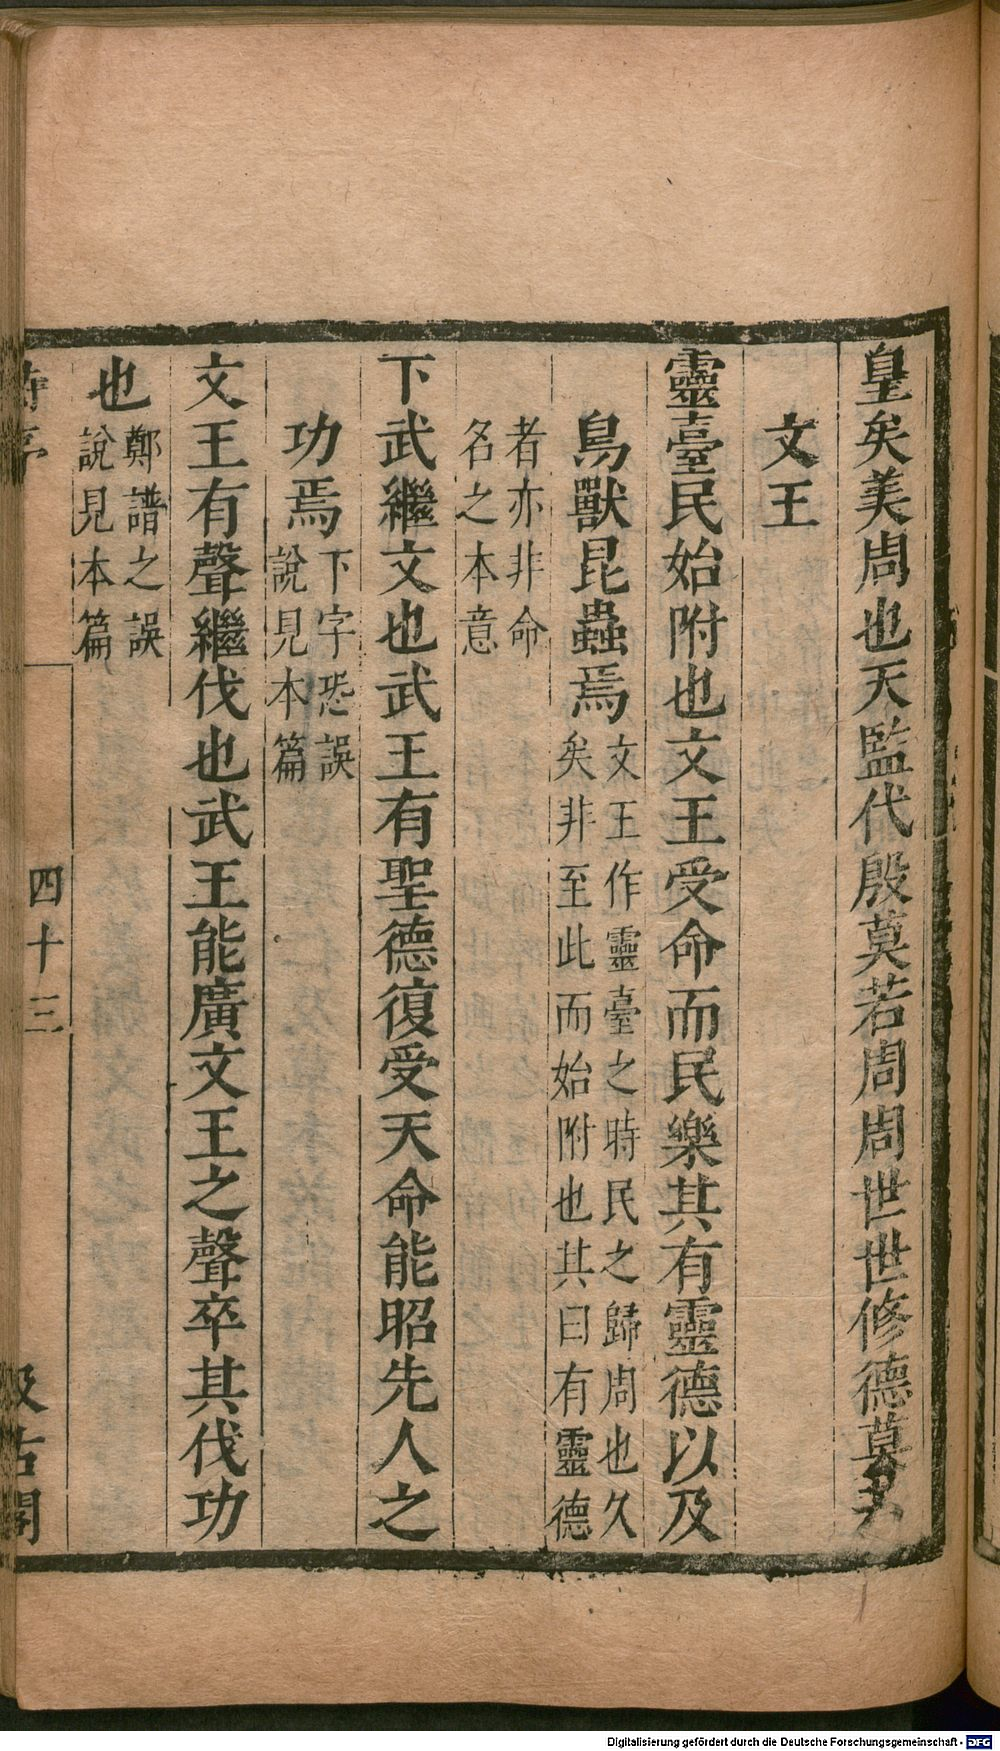 皇矣美周也天監代殷莫若周周世世修德莫若
文王
靈臺民始附也文王受命而民樂其有靈德以及
鳥獸昆蟲焉文王作靈臺之時民之歸周也久
矣非至此而始附也其曰有靈德
者亦非命
名之本意
下武繼文也武王有聖德復受天命能昭先人之
功焉下字恐誤
說見本篇
文王有聲繼伐也武王能廣文王之聲卒其伐功
也鄭譜之誤
說見本篇
詩序
四十三
汲古閣
Digitalisierung gefördert durch die Deutsche Forschungsgemeinschaft - DFG